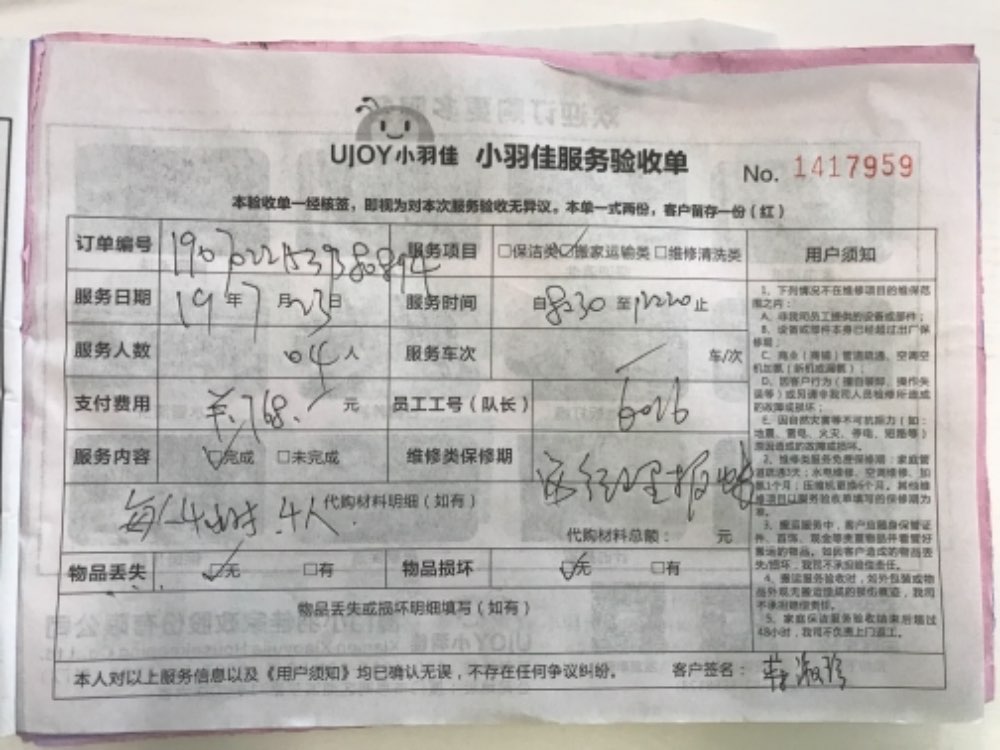 UJOY小羽佳 小羽佳服务验收单
No. 1417959
本验收单一经核签，即视为对本次服务验收无异议。本单一式两份，客户留存一份（红）
订单编号 服务项目 □保洁类 ☑搬家运输类 □维修清洗类 用户须知
服务日期 19年7月23日 服务时间 自8:30至12:20止
服务人数 04人 服务车次 车/次
支付费用 ¥768. 元 员工工号（队长） 6026
服务内容 ☑完成 □未完成 维修类保修期
代购材料明细（如有）
4小时.4人.
代购材料总额： 元
物品丢失 ☑无 □有 物品损坏 ☑无 □有
物品丢失或损坏明细填写（如有）
本人对以上服务信息以及《用户须知》均已确认无误，不存在任何争议纠纷。 客户签名：
1、下列情况不在维修项目的维保范
围之内：
A、非我司员工提供的设备或部件；
B、设备或部件本身已经超过出厂保
修期；
C、商业（商铺）管道疏通、空调空
机加氟（新机或漏氟）；
D、因客户行为（擅自破解、操作失
误等）或另请非我司人员检修所造成
的故障或损坏；
E、因自然灾害等不可抗原力（如：
地震、雷电、火灾、停电、短路等）
原因造成的故障或损坏。
2、维修类服务免费保修期：家庭管
道疏通3天；水电维修、空调维修、加
氟1个月；压缩机更换6个月。其他维
修项目以服务验收单填写的保修期为
准。
3、搬运服务中，客户应随身保管证
件、首饰、现金等贵重物品并看管好
搬运的物品。如因客户造成的物品丢
失/损坏，我司不承担赔偿责任。
4、搬运服务验收时，如外包装或物
品外观无搬运造成的损伤痕迹，我司
不承担赔偿责任。
5、家庭保洁服务验收结束后超过
48小时，我司不负责上门返工。